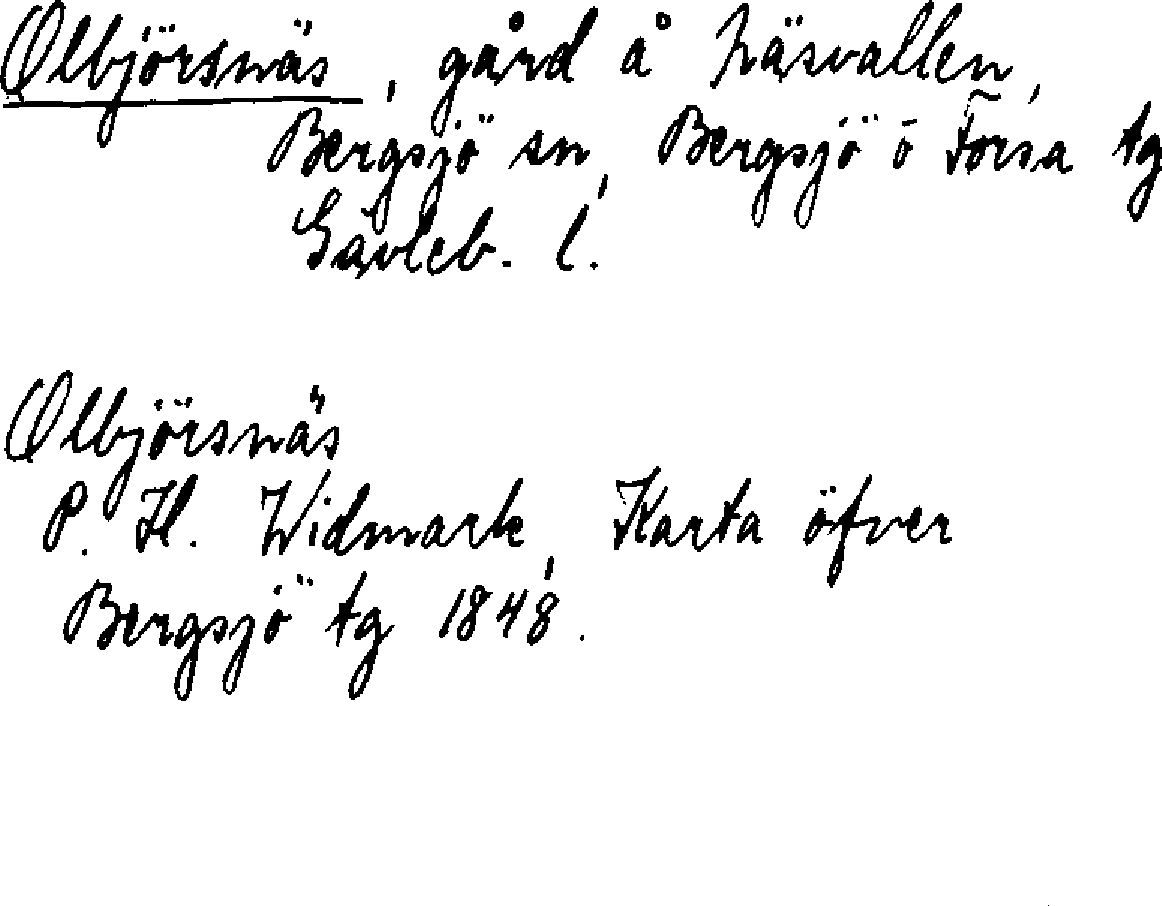 Olbjörsnäs, gård å Näsvallen,
Bergsjö sn, Bergsjö o Forsa tg
Gävleb. l.
Olbjörsnäs
P. H. Widmark, Karta öfver
Bergsjö tg 1848.